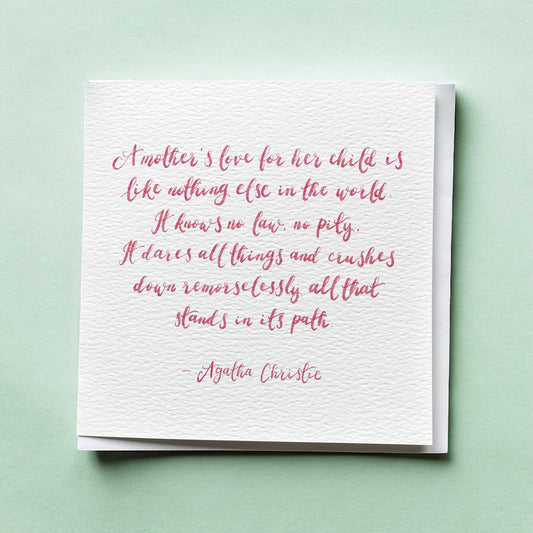 A mother's love for her child is
like nothing else in the world.
It knows no law, no pity.
It dares all things and crushes
down remorselessly all that
stands in its path.
- Agatha Christie